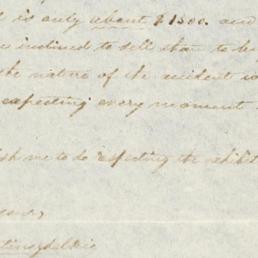 is only about $1500. and
inclined to sell than to be
the nature of the accident
expecting every moment
me to do respecting the exhibit